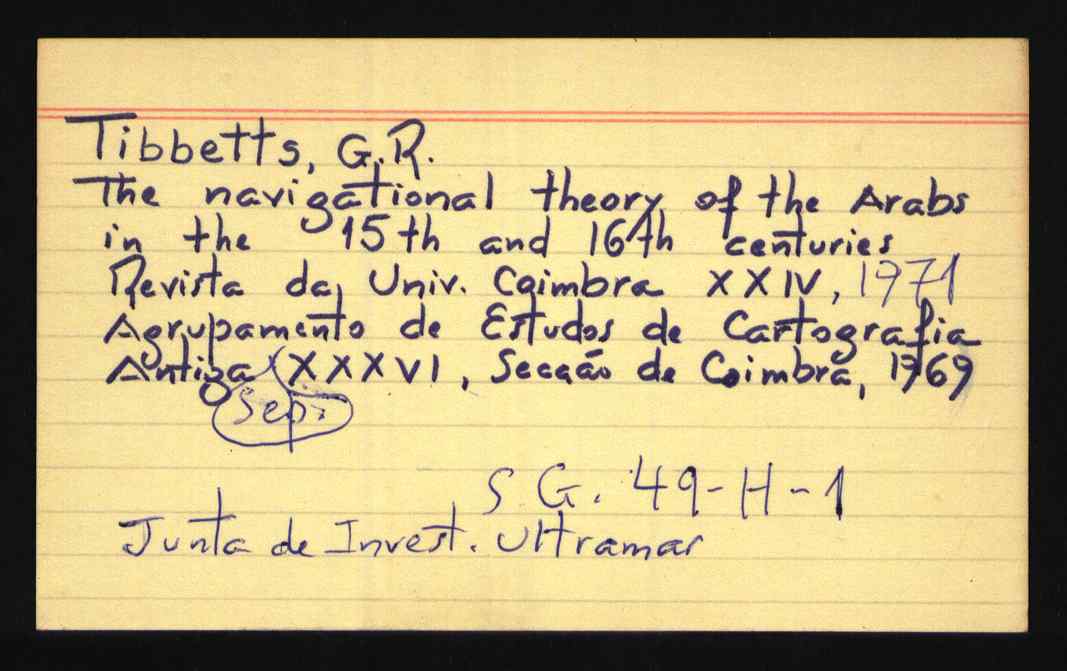 Tibbetts, G.R.
The navigational theory of the Arabs
in the 15th and 16th centuries
Revista da Univ. Coimbra XXIV, 1971
Agrupamento de Estudos de Cartografia
Antiga XXXVI, Secção de Coimbra, 1969
Sep.
S.G. 49-H-1
Junta de Invest. Ultramar